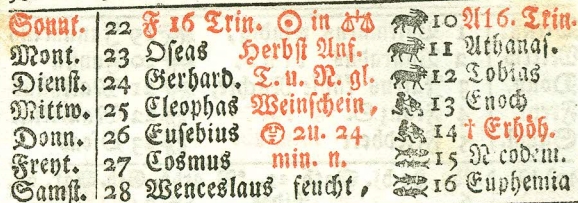 Sonnt. 22 F 16 Trin. ☉ in ♎ 10 A16. Trin.
Mont. 23 Oseas Herbst Anf. 11 Athanas.
Dienst. 24 Gerhard. T. u. N. gl. 12 Tobias
Mittw. 25 Cleophas Weinschein, 13 Enoch
Donn. 26 Eusebius 2u. 24 14 † Erhöh.
Freyt. 27 Cosmus min. n. 15 N codem.
Samst. 28 Wenceslaus feucht, 16 Euphemia